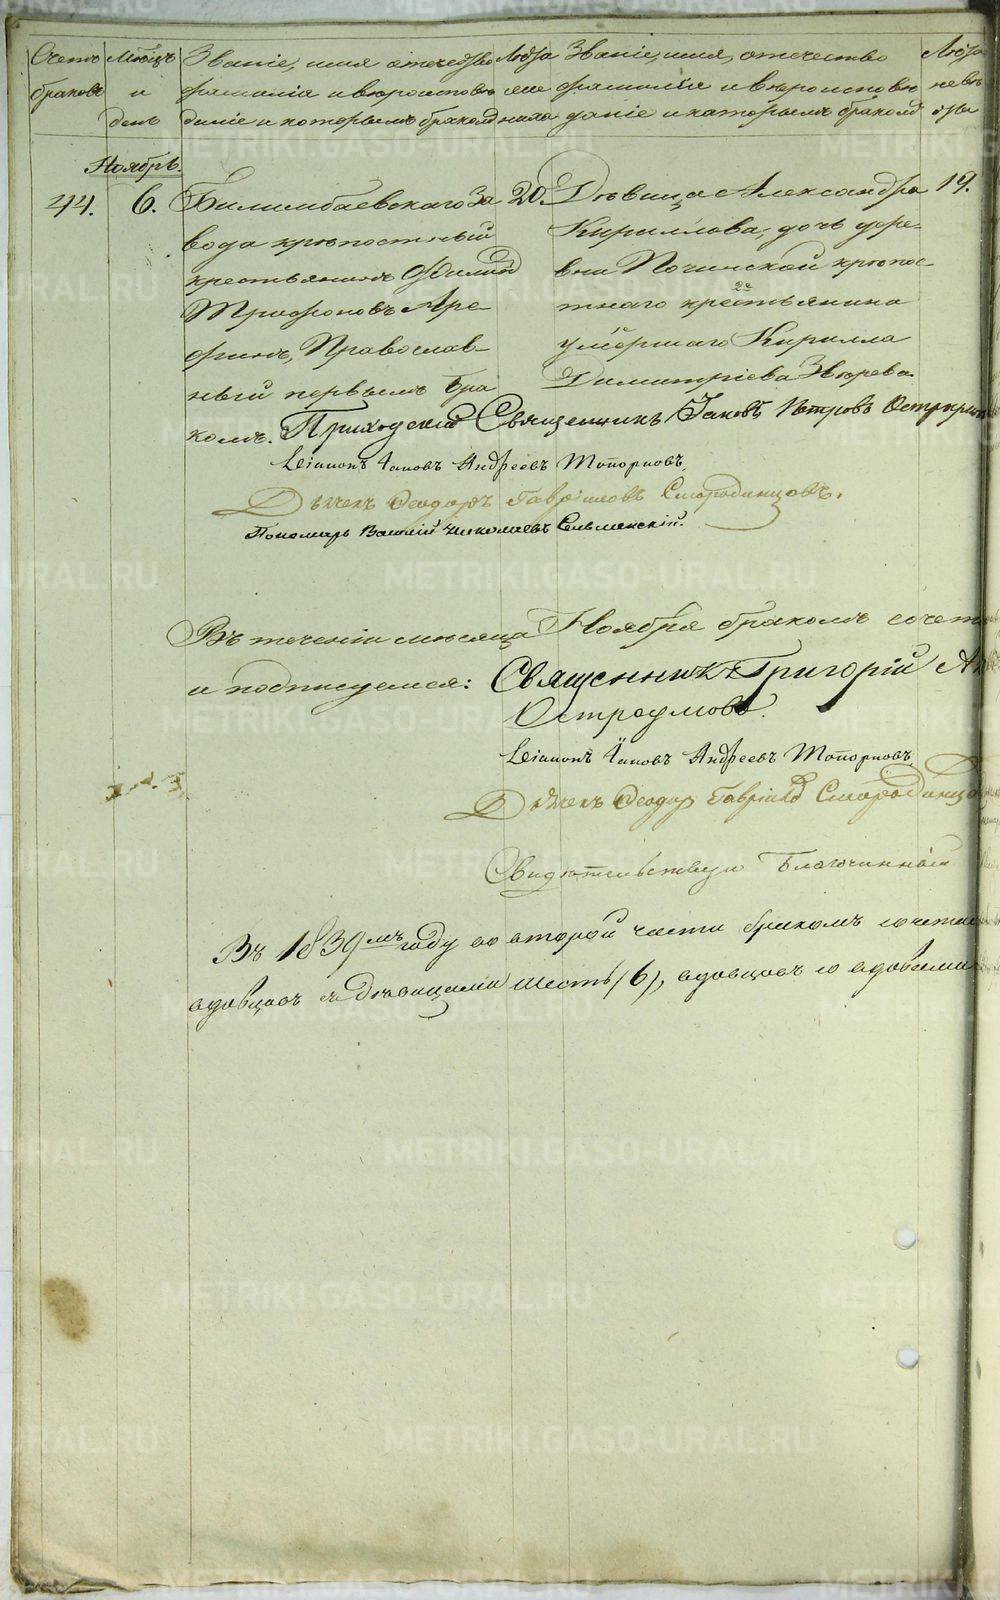 Счетъ браковъ
Мѣсяцъ и день
Званіе, имя отечество
фамилія и вѣроисповѣ
даніе и которымъ бракомъ
Лѣта
жениха
Званіе, имя, отечество
фамилія и вѣроисповѣ
даніе и которымъ бракомъ
Лѣта
невѣ
сты
Ноябрь.
44.
6.
Билимбаевскаго За
вода крѣпостный
крестьянинъ Филипп
Трифоновъ Аре
финъ, Православ-
ный первымъ бра
комъ.
20.
Дѣвица Александра
Кириллова, дочь дере-
вни Починской крѣпос-
тнаго крестьянина
умершаго Кирилла
Димитріева Звѣрева
19.
Приходскій Священникъ Іаковъ Петровъ
Діаконъ Іаковъ Андреевъ Топорковъ
Дьячекъ Ѳеодоръ Гавріиловъ Смородинцовъ.
Пономарь Василій Николаевъ Сельменскій.
Въ теченіи мѣсяца Ноября бракомъ сочет
и подписуемся: Священникъ Григорій
Остроумовъ.
Діаконъ Іаковъ Андреевъ Топорковъ
Дьячекъ Ѳеодор Гавріилов Смородинцо
Свидѣтельствую Благочинный
Въ 1839мъ году во второй части бракомъ сочета
вдовцовъ съ дѣвицами шесть (6), вдовцовъ со вдовами
METRIKI.GASO-URAL.RU